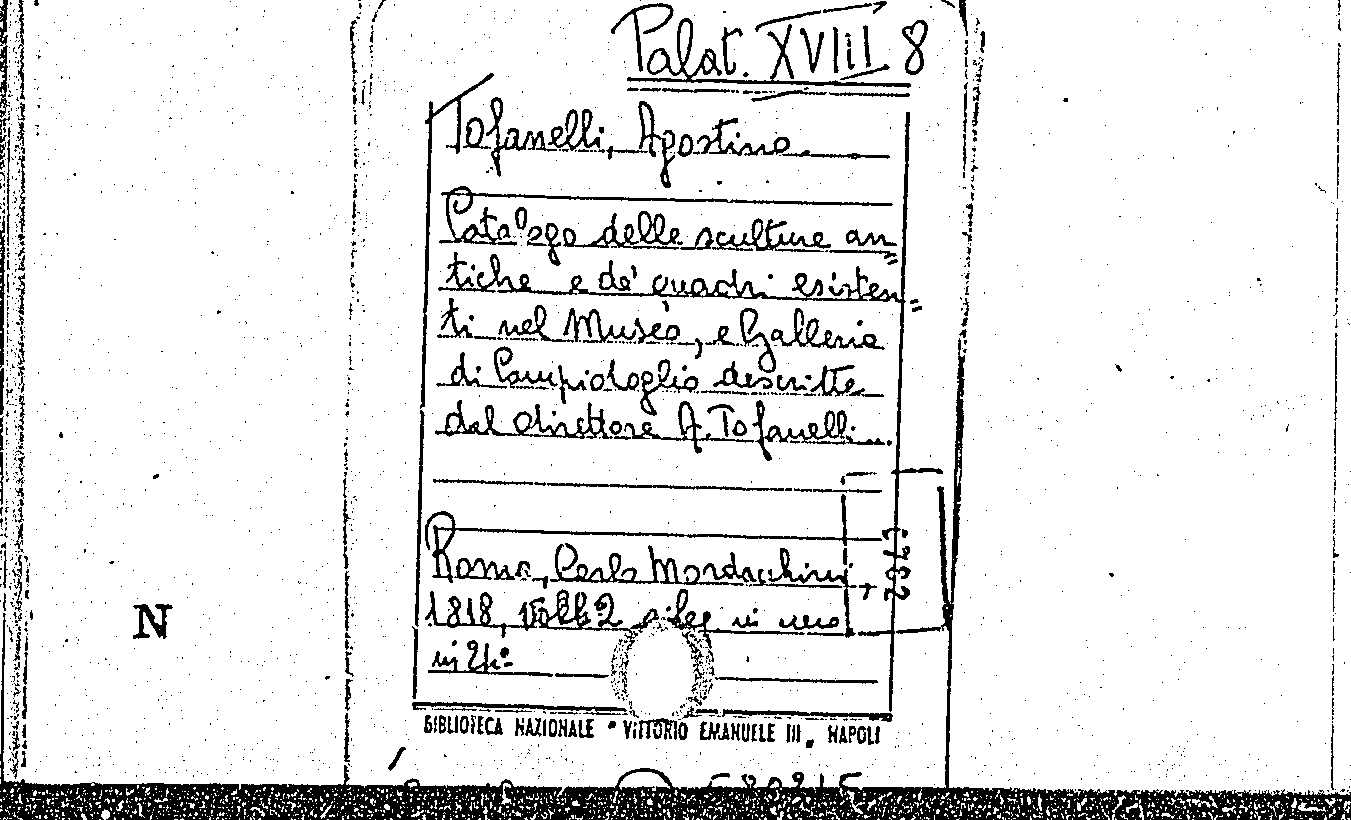 Palat. XVIII 8
Tofanelli, Agostino.
Catalogo delle sculture an
tiche e de' quadri esisten=
ti nel Museo, e Galleria
di Campidoglio descritte
dal direttore A. Tofanelli...
Roma, Carlo Mordacchini,
1818, Voll. 2 rileg in uno
in 24°
BIBLIOTECA NAZIONALE "VITTORIO EMANUELE III" NAPOLI
N